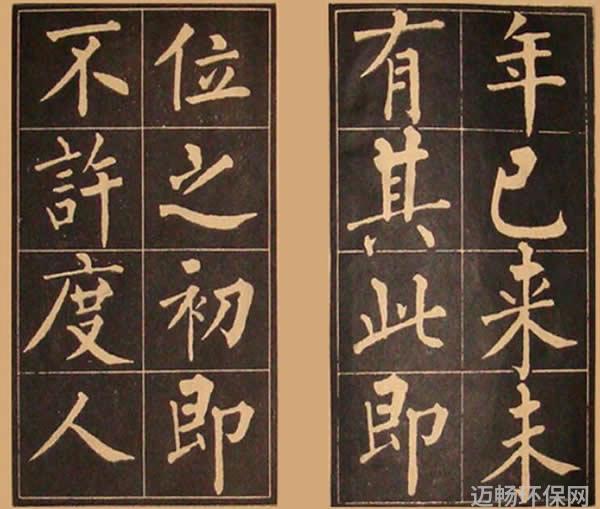 年已来未
有其此即
位之初即
不許度人
迈畅环保网